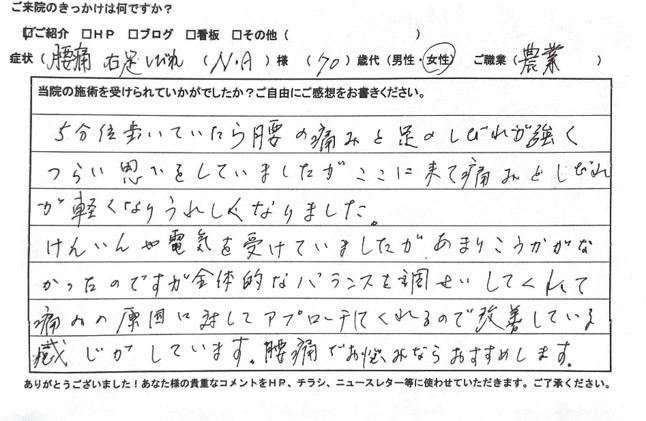 ご来院のきっかけは何ですか?
☑ご紹介 □HP □ブログ □看板 □その他( )
症状(腰痛 右足しびれ (N.A)様 (70)歳代(男性・女性) ご職業(農業)
当院の施術を受けられていかがでしたか?ご自由にご感想をお書きください。
5分位歩いていたら腰の痛みと足のしびれが強く
つらい思いをしていましたがここに来て痛みとしびれ
が軽くなりうれしくなりました。
けんいんや電気を受けていましたがあまりこうかがな
かったのですが全体的なバランスを調せいしてくれて
痛みの原因に対してアプローチしてくれるので改善している
感じがしています。腰痛でお悩みならおすすめします。
ありがとうございました!あなた様の貴重なコメントをHP、チラシ、ニュースレター等に使わせていただきます。ご了承ください。